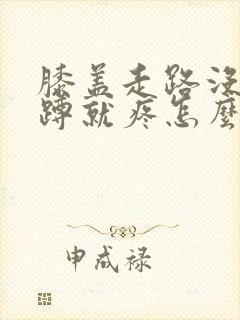 膝盖走路没
蹲就疼怎麼
申成禄